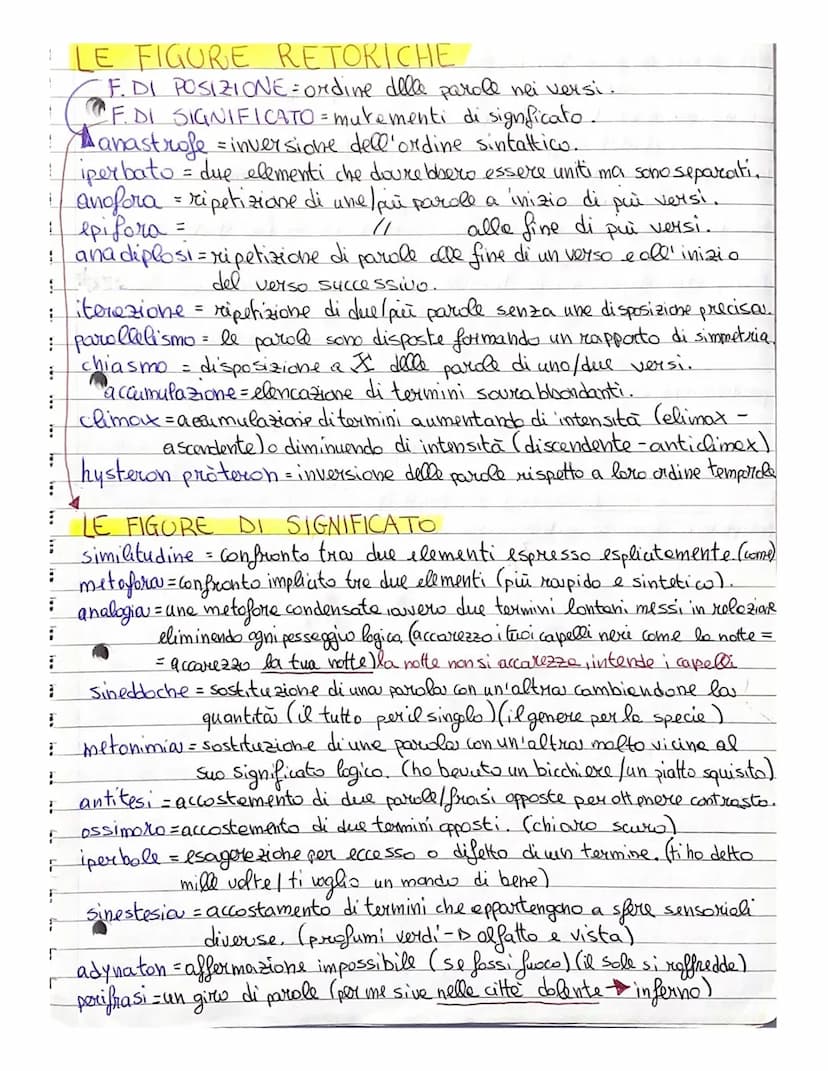 LE FIGURE RETORICHE
F. DI POSIZIONE = ordine delle parole nei versi.
F. DI SIGNIFICATO = mutamenti di signficato.
anastrofe = inversione dell'ordine sintattico.
iperbato = due elementi che dovrebbero essere uniti ma sono separati.
anafora = ripetizione di una/più parole a inizio di più versi.
epifora = // alla fine di più versi.
anadiplosi = ripetizione di parole alla fine di un verso e all'inizio
del verso successivo.
iterazione = ripetizione di due/più parole senza una disposizione precisa.
parallelismo = le parole sono disposte formando un rapporto di simmetria.
chiasmo = disposizione a X delle parole di uno/due versi.
accumulazione = elencazione di termini sovrabbondanti.
climax = accumulazione di termini aumentando di intensità (climax -
ascendente) o diminuendo di intensità (discendente - anticlimax)
hysteron pròteron = inversione delle parole rispetto a loro ordine temporale
LE FIGURE DI SIGNIFICATO
similitudine = confronto tra due elementi espresso esplicitamente. (come)
metafora = confronto implicito tra due elementi (più rapido e sintetico).
analogia = una metafora condensata, ovvero due termini lontani messi in relazione
eliminando ogni passaggio logico. (accarezzo i tuoi capelli neri come la notte =
= accarezzo la tua notte) la notte non si accarezza, intende i capelli
sineddoche = sostituzione di una parola con un'altra cambiandone la
quantità (il tutto per il singolo) (il genere per la specie)
metonimia = sostituzione di una parola con un'altra molto vicina al
suo significato logico. (ho bevuto un bicchiere / un piatto squisito)
antitesi = accostamento di due parole/frasi opposte per ottenere contrasto.
ossimoro = accostamento di due termini opposti. (chiaro scuro)
iperbole = esagerazione per eccesso o difetto di un termine. (ti ho detto
mille volte / ti voglio un mondo di bene)
sinestesia = accostamento di termini che appartengono a sfere sensoriali
diverse. (profumi verdi -> olfatto e vista)
adynaton = affermazione impossibile (se fossi fuoco) (il sole si raffredda)
perifrasi = un giro di parole (per me si va nella città dolente → inferno)